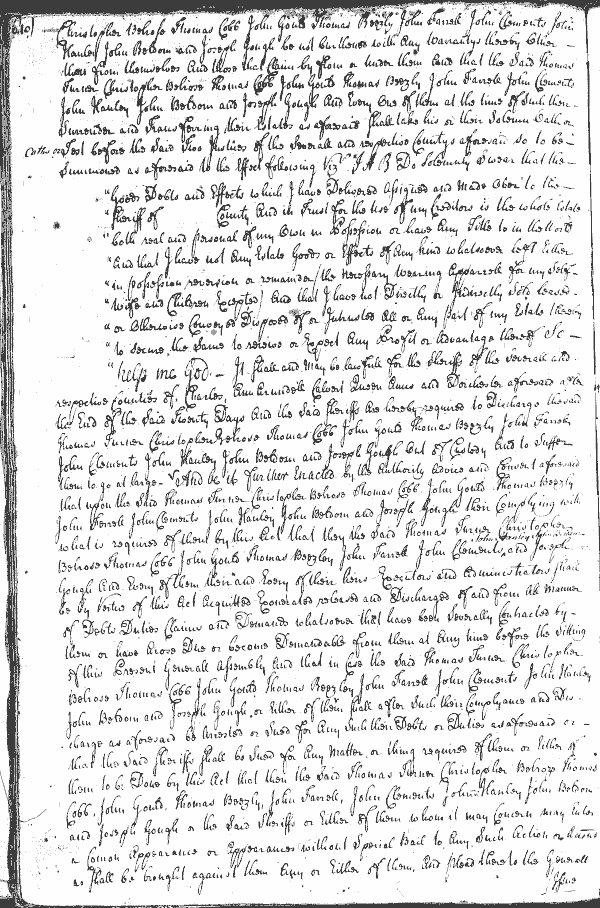 610)
Christopher Belrose Thomas Cobb John Gould Thomas Beezly John Farrell John Clements John
Hanley John Beldom and Joseph Gough be not burthened with Any Warrantys thereby Other
than from themselves And those that Claim by from or under them And that the Said Thomas
Turner Christopher Belrose Thomas Cobb John Gould Thomas Beezly John Farrell John Clements
John Hanley John Beldom and Joseph Gough And Every One of them at the time of Such their
Surrender and Transferring their Estates as aforesaid Shall take his or their Solemn Oath or
Oath or Test before the Said Two Justices of the Severall and respective Countys aforesaid so to be
Summoned as aforesaid to the Effect following Vizt. I A B Do Solemnly Swear that the
"Goods Debts and Effects which I have Delivered Assigned and Made Over to the
"Sheriff of County And in Trust for the Use of my Creditors is the whole Estate
"both real and personal of my Own in Possession or have Any Title to in the World
"And that I have not Any Estate Goods or Effects of Any kind whatsoever left Either
"in possession reversion or remainder (the Necessary Wearing Apparrell for my Self
"Wife and Children Excepted) And that I have not Directly or Indirectly Sold Leased
"or Otherwise Conveyed Disposed of or Intrusted All or Any part of my Estate thereby
"to Secure the Same to receive or Expect Any Profit or Advantage thereof So
"help me God. It Shall and May be lawfull for the Sheriff of the Severall and
respective Counties of Charles, Ann Arundell Calvert Queen Anns and Dorchester aforesaid after
the End of the Said Twenty Days And the Said Sheriffs Are hereby required to Discharge the said
Thomas Turner Christopher Belrose Thomas Cobb John Gould Thomas Beezly John Farrell
John Clements John Hanley John Beldom and Joseph Gough Out of Custody And to Suffer
them to go at large And be it further Enacted by the Authority Advice and Consent aforesaid
that upon the Said Thomas Turner Christopher Belrose Thomas Cobb John Gould Thomas Beezly
John Ferrell John Clements John Hanley John Beldom and Joseph Gough their Complying with
what is required of them by this Act that they the Said Thomas Turner Christopher
Belrose Thomas Cobb John Gould Thomas Beezley John Farrell John Clements, and Joseph
Gough And Every of them their and Every of their heirs Executors and Administrators Shall
be by Vertue of this Act Acquitted Exonerated released and Discharged of and from All Manner
of Debts Duties Claims and Demands whatsoever that have been Severally Contracted by
them or have Arose Due or become Demandable from them at Any time before the Sitting
of this Present Generall Assembly And that in Case the Said Thomas Turner Christopher
Belrose Thomas Cobb John Gould Thomas Beezley John Farrell John Clements John Hanley
John Beldom and Joseph Gough, or Either of them Shall after Such their Complyance and Dis
charge as aforesaid be Arrested or Sued for Any Such their Debts or Duties as aforesaid or
that the Said Sheriffs Shall be Sued for Any Matter or thing required of them or Either of
them to be Done by this Act that then the Said Thomas Turner Christopher Belrose Thomas
Cobb, John Gould, Thomas Beezly, John Farrell, John Clements John Hanley John Beldom
and Joseph Gough or the Said Sheriffs or Either of them whom it may Concern may Enter
a Common Appearance or Appearances without Special Bail to Any Such Action or Actions
as Shall be brought against them Any or Either of them, And plead thereto the Generall
Issue